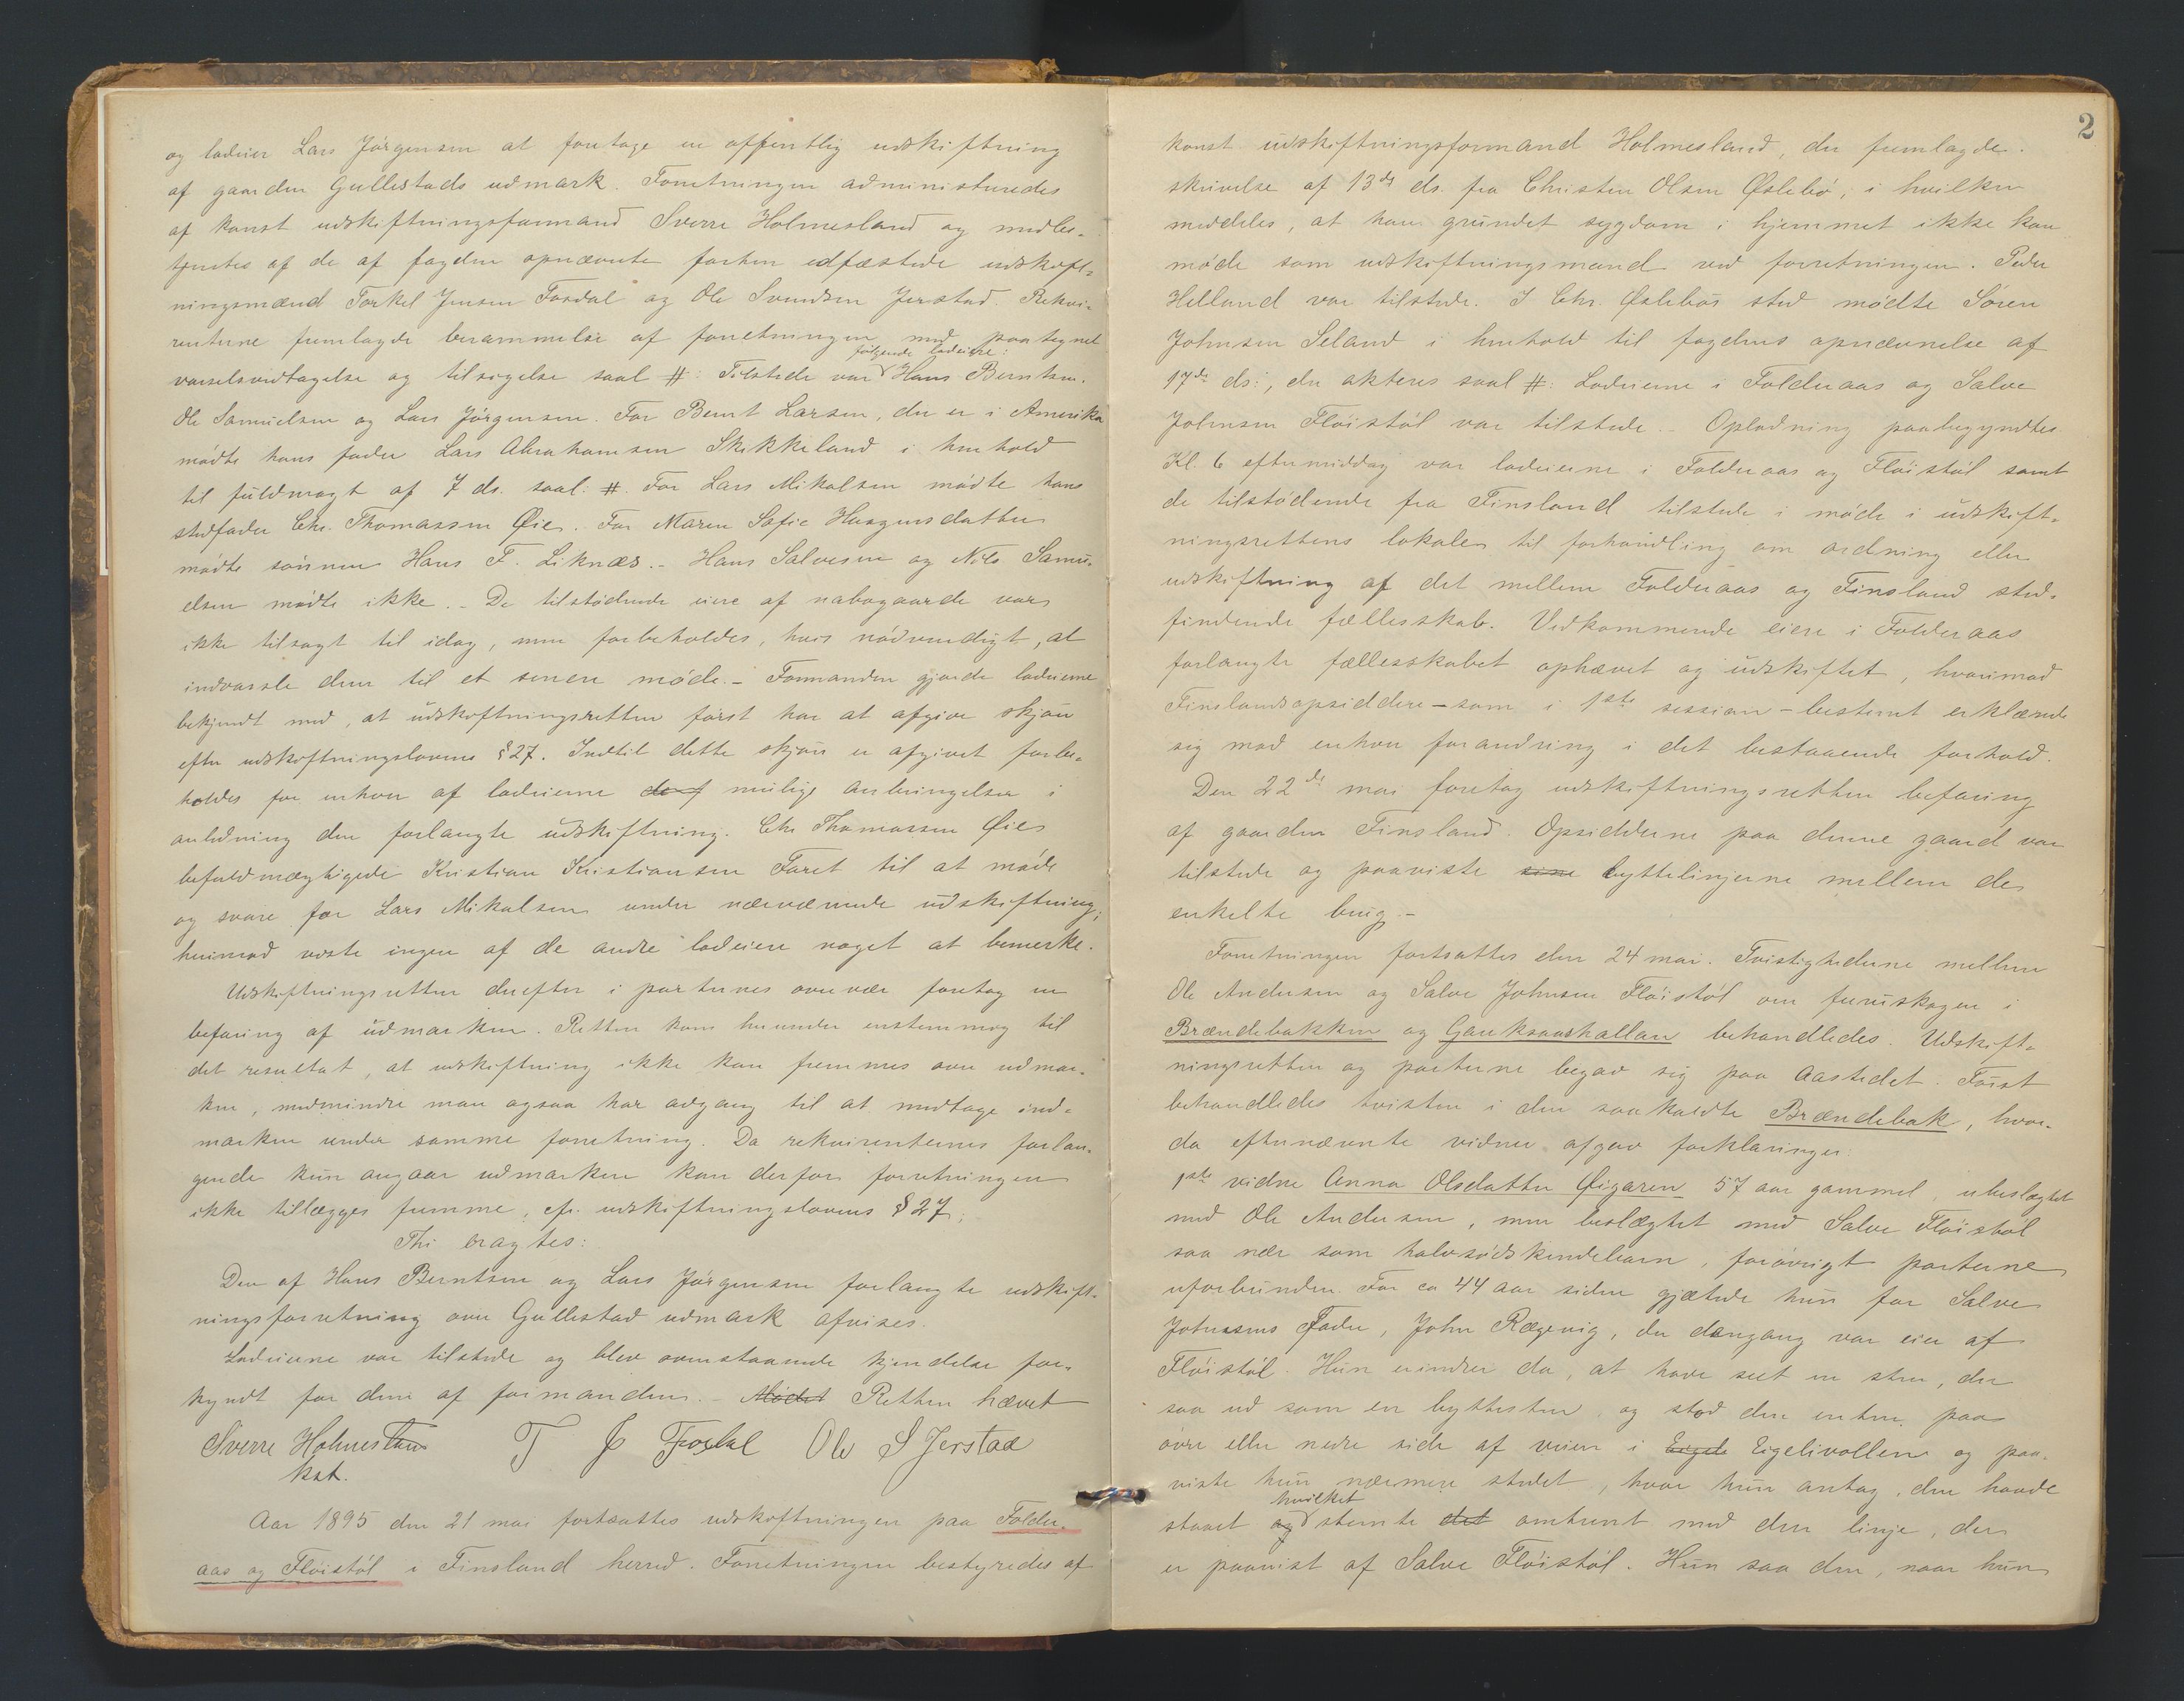 og lodeier Lars Jörgensen at foretage en offentlig udskiftning
af gaarden Gullestads udmark. Forretningen administreredes
af konst udskiftningsformand Sverre Holmesland og medbe-
tjentes af de af fogden opnævnte forhen edfæstede udskift-
ningsmænd Torkel Jensen Fosdal og Ole Svendsen Jerstad. Rekvi-
renterne fremlagde berammelse af forretningen med paategnet
følgende lodeiere:
varselsvedtagelse og tilsigelse saal #: Tilstede var Hans Berntsen.
Ole Samuelsen og Lars Jörgensen. For Bernt Larsen, der er i Amerika
mödte hans fader Lars Abrahamsen Skikkeland i henhold
til fuldmagt af 7 ds. saal. #. For Lars Mikalsen mödte hans
stedfader Chr. Thomassen Øie. For Maren Sofie Haagensdatter
mödte sönnen Hans F. Liknæs. - Hans Salvesen og Nils Samu-
elsen mödte ikke. - De tilstödende eiere af nabogaarde var
ikke tilsagt til idag, men forbeholdes, hvis nödvendigt, at
indvarsle dem til et senere möde. - Formanden gjorde lodeierne
bekjendt med, at udskiftningsretten först har at afgive skjön
efter udskiftningslovens § 27. Indtil dette skjön er afgivet forbe-
holdes for enhver af lodeierne mulige anbringelser i
anledning den forlangte udskiftning. Chr Thomassen Øie
befuldmægtigede Kristian Kristiansen Faret til at möde
og svare for Lars Mikalsen under nærværende udskiftning;
herimod vidste ingen af de andre lodeiere noget at bemerke.
Udskiftningsretten derefter i parternes overvær foretog en
befaring af udmarken. Retten kom herunder enstemmig til
det resultat, at udskiftning ikke kan fremmes over udmar-
ken, medmindre man ogsaa har adgang til at medtage ind-
marken under samme forretning. Da rekvirenternes forlan-
gende kun angaar udmarken kan derfor forretningen
ikke tillægges fremme, cfr. udskiftningslovens § 27;
Thi eragtes:
Den af Hans Berntsen og Lars Jörgensen forlangte udskift-
ningsforretning over Gullestad udmark afvises.
Lodeierne var tilstede og blev ovenstaaende kjendelse for-
kyndt for dem af formanden. - Mödet Retten hævet
Sverre Holmesland T J Fosdal Ole S Jerstad
kst.
Aar 1895 den 21 mai fortsattes udskiftningen paa Folder-
aas og Flöistöl i Finsland herred. Forretningen bestyredes af
2
konst udskiftningsformand Holmesland, der fremlagde
skrivelse af 13de ds. fra Christen Olsen Øslebö, i hvilken
meddeles, at han grundet sygdom i hjemmet ikke kan
möde som udskiftningsmand ved forretningen. Peder
Helland var tilstede. I Chr. Øslebös sted mödte Sören
Johnsen Seland i henhold til fogdens opnævnelse af
17de ds:, der akteres saal #: Lodeierne i Folderaas og Salve
Johnsen Flöistöl var tilstede. - Oplodning paabegyndtes.
Kl. 6 eftermiddag var lodeierne i Folderaas og Flöistöl samt
de tilstödende fra Finsland tilstede i möde i udskift-
ningsrettens lokale til forhandling om ordning eller
udskiftning af det mellem Folderaas og Finsland sted-
findende fællesskab. Vedkommende eiere i Folderaas
forlangte fællesskabet ophævet og udskiftet, hvorimod
Finslandsopsiddere - som i 1ste session - bestemt erklærede
sig mod enhver forandring i det bestaaende forhold.
Den 22de mai foretog udskiftningsretten befaring
af gaarden Finsland. Opsidderne paa denne gaard var
tilstede og paaviste sine byttelinjerne mellem de
enkelte brug. -
Forretningen fortsattes den 24 mai. Tvistighederne mellem
Ole Andersen og Salve Johnsen Flöistöl om furuskogen i
Brændebakken og Gauksaashallan behandledes. Udskift-
ningsretten og parterne begav sig paa aastedet. Först
behandledes tvisten i den saakaldte Brændebak, hvor-
da efternævnte vidner afgav forklaringer:
1ste vidne Anna Olsdatter Øigaren 57 aar gammel, ubeslægtet
med Ole Andersen, men beslægtet med Salve Flöistöl
saa nær som halvsödskendebarn, forövrigt parterne
uforbunden. For ca 44 aar siden gjætede hun for Salve
Johnsens Fader, John Rægevig, der dengang var eier af
Flöistöl. Hun erindrer da, at have seet en sten, der
saa ud som en byttesten, og stod den enten paa
övre eller nedre side af veien i Eigeli Eigelivollene og paa-
viste hun nærmere stedet, hvor hun antog, den havde
hvilket
staaet og stemte det omtrent med den linje, der
er paavist af Salve Flöistöl. Hun saa den, naar hun